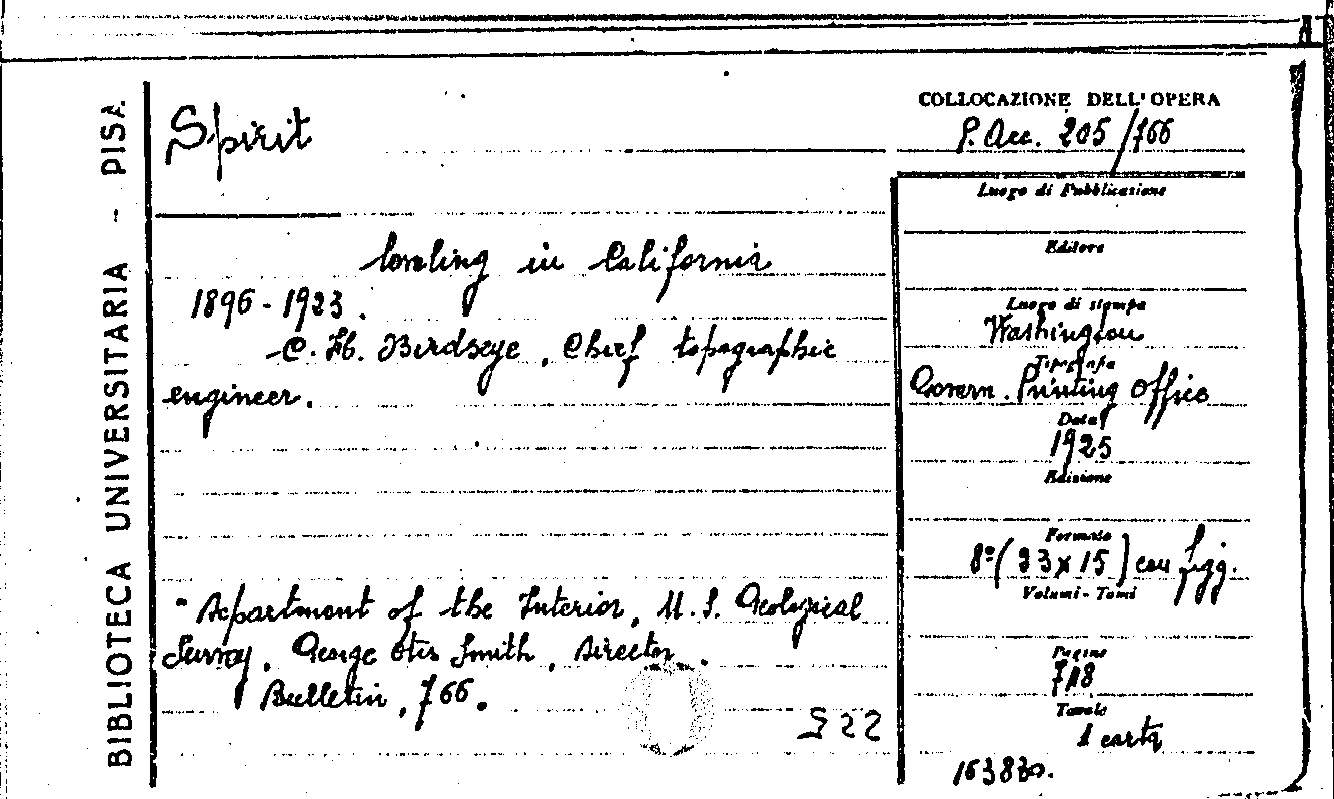 BIBLIOTECA UNIVERSITARIA - PISA
Spirit
leveling in California
1896-1923.
C. H. Birdseye, Chief topographic
engineer.
"Department of the Interior, U.S. Geological
Survey, George Otis Smith, Director.
Bulletin, 766.
S 22
COLLOCAZIONE DELL'OPERA
P. Acc. 205/766
Luogo di Pubblicazione
Editore
Luogo di stampa
Washington
Tipografia
Govern. Printing Office
Data
1925
Edizione
Formato
8º (23x15) con figg.
Volumi - Tomi
Pagine
718
Tavole
1 carta